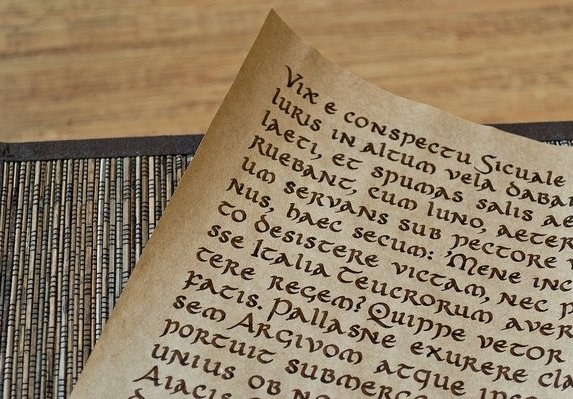 Vix e conspectu Sicuale
luris in altum vela daba
laeti, et spumas salis ae
ruebant, cum Iuno, aeter
um servans sub pectore
nus, haec secum: 'Mene inc
to desistere victam, nec p
sse Italia Teucrorum aver
tere regem? Quippe vetor
fatis. Pallasne exurere cla
sem Argivom atque ips
portuit submerge
unius ob no
Aiacis